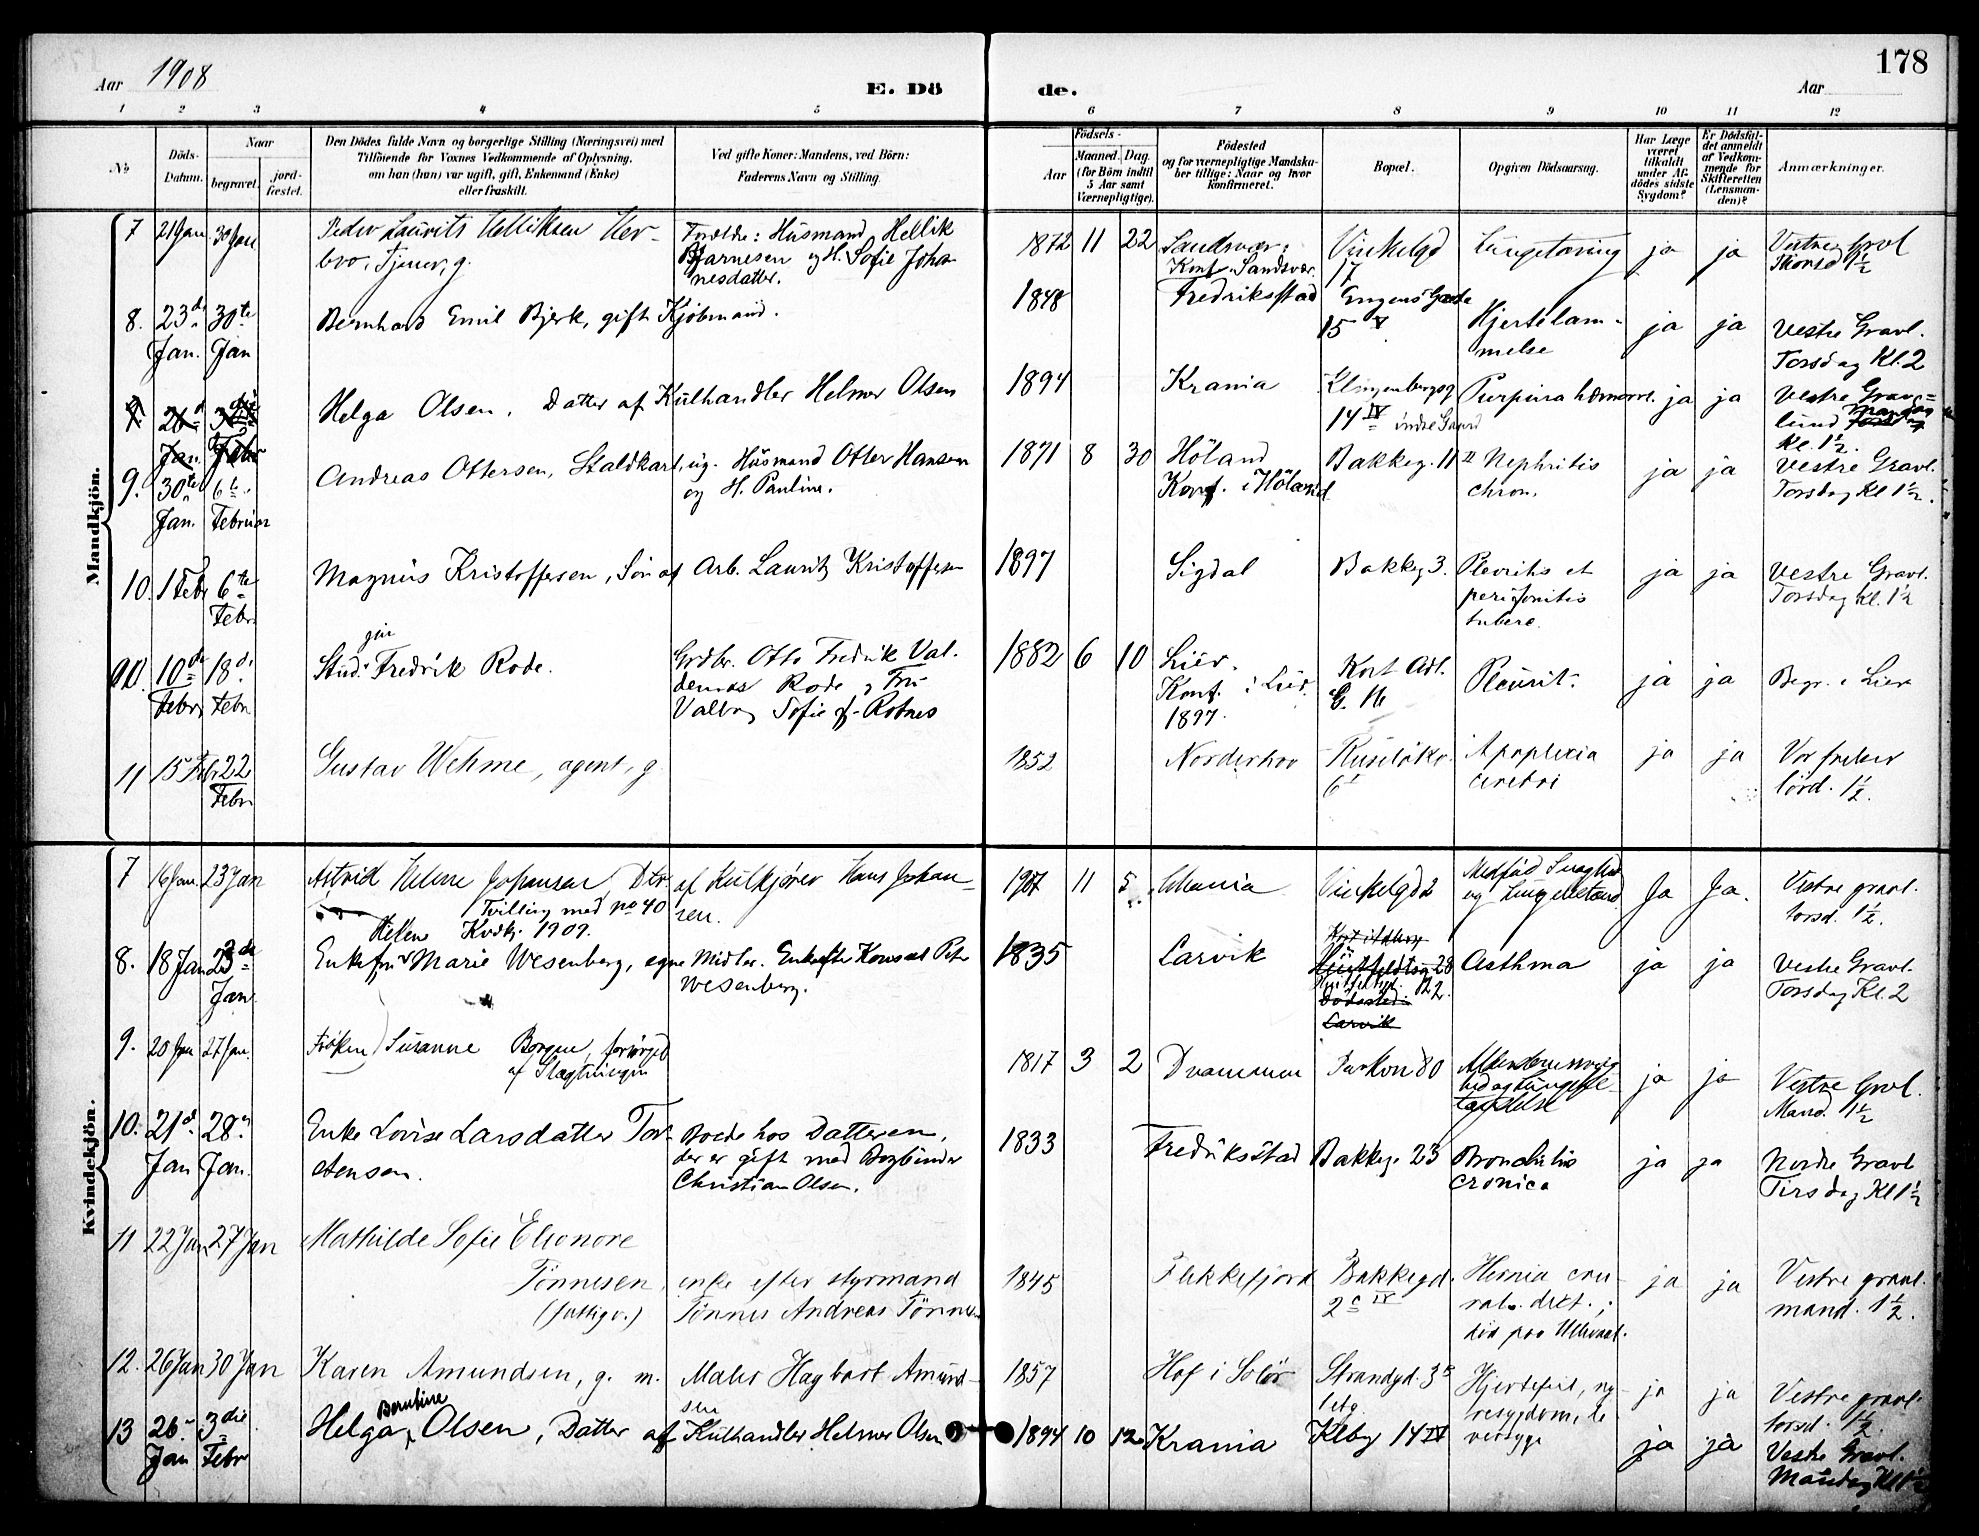 Aar 1908
E. Dö de.
Aar
178
1 2 3 4 5 6 7 8 9 10 11 12
No
Döds-Datum.
Naar
begravet.
jord-fæstet.
Den Dödes fulde Navn og borgerlige Stilling (Næringsvei) med
Tilföiende for Voxnes Vedkommende af Oplysning,
om han (hun) var ugift, gift, Enkemand (Enke)
eller fraskilt.
Ved gifte Koner: Mandens, ved Börn:
Faderens Navn og Stilling.
Födsels-
Aar
Maaned. Dag.
(for Börn indtil
5 Aar samt
Værnepligtige).
Födested
og for værnepligtige Mandska-
ber tillige: Naar og hvor
konfirmeret.
Bopæl.
Opgiven Dödsaarsag.
Har Læge
været
tilkaldt
under Af-
dödes sidste
Sygdom?
Er Dödsfal-
det anmeldt
af Vedkom-
mende for
Skifteretten
(Lensman-
den)?
Anmærkninger.
Mandkjön.
7 21 Jan 30 Jan Peder Laurits Helliksen
bro, Tjener, g.
Forældre: Husmand Hellik
Bjarnesen og H. Sofie Johan
nesdatter.
1872 11 22 Sandsvær:
Konf. Sandsvær.
Vinkelgd
17
Lungetæring ja ja Vestre Gravl
1½
8. 23de Jan. 30te Jan Bernhard Emil Bjerk, gift Kjöbmand.
1848 Fredriksstad Engens Gade
15 V
Hjertelam-
melse
ja ja Vestre Gravl.
Torsdag Kl. 2
Helga Olsen. Datter af Kulhandler Helmer Olsen
1894 Krania Klingenbergsg
14 IV indre Gaard
Purpura hæmorrh. ja ja Vestre Grav=
lund Mandag
Kl. 1½
9. 30te Jan. 6te Februar Andreas Ottersen, Staldkarl, ug. Husmand Otter Hansen
og H. Pauline.
1871 8 30 Höland
Konf. i Höland
Bakkeg. 11 II Nephritis
chron.
ja ja Vestre Gravl.
Torsdag Kl 1½.
10. 1 Febr 6te Febr. Magnus Kristoffersen, Sön af Arb. Lauritz Kristoffersen
1897 Sigdal Bakkeg 3. Plevritis et
peritonitis
tuberc.
ja ja Vestre Gravl.
Torsdag Kl. 1½
10de Febr 18de Febr. Stud. jur Fredrik Rode.
Grdbr. Otto Fredrik Val.
demar Rode og Fru
Valborg Sofie f. Robnes
1882 6 10 Lier.
Konf. i Lier.
1897.
Kort Adl.
G. 16
Pleurit. ja ja Begr. i Lier
11 15 Feb. 22 Febr. Gustav Wehme, agent, g.
1852 Norderhov Ruselökv.
6
Apoplexia
cerebri
ja ja Vor frelser
lörd. 1½.
Kvindekjön.
7 16 Jan. 23 Jan Astrid Helene Johansen, Dtr. af Kulkjörer Hans Johan-
sen.
Tvilling med no 40
Kvdkj. 1907.
1907 11 5 Chania Vinkelgd 2 Medfød Svaghed
og Lungebetænd
Ja Ja. Vestre gravl.
torsd. 1½.
8. 18 Jan 23de Jan Enkefru Helene Marie Wesenberg, egne Midler. Enke efter Konsul Peter
Wesenberg.
1835 Larvik
Dödssted:
Larvik
Asthma ja ja Vestre Gravl.
Torsdag Kl. 2
9. 20 Jan 27 Jan. Fröken Susanne Borgen, forsörget
af Slægtninger
1817 3 2 Drammen Parkvn 80 Alderdomssvag
hed og Lungebe
tændelse
ja ja Vestre Gravl.
Mand. 1½
10. 21de Jan 28de Jan. Enke Lovise Larsdatter Tor-
stensen.
Boede hos Datteren,
der er gift med Bogbinder
Christian Olsen.
1833 Fredriksstad Bakkeg. 23 Bronchitis
cronica
ja ja Nordre Gravl
Tirsdag Kl 1½
11 22 Jan 27 Jan Mathilde Sofie Elionore
Tönnesen, enke efter styrmand
(fattigv.) Tönnes Andreas Tönnesen
1845 Flekkefjord Bakkegd.
2 c IV
Hernia cru-
ral. dext.;
död paa Ullevaal.
ja ja Vestre gravl.
mand. 1½.
12. 26 Jan 30 Jan Karen Amundsen, g. m. Maler Hagbart Amund-
sen
1857 Hof i Solör Strandgd. 3 b
1 etg.
Hjertefeil, ny-
resygdom, le
versyge
ja ja Vestre gravl.
torsd. 1½.
13 26 Jan 3die Febr Helga Berntine Olsen, Datter af Kulhandler Helmer Olsen
1894 10 12 Krania Klbg 14 IV ja ja Vestre Gravl.
Mandag Kl 1½